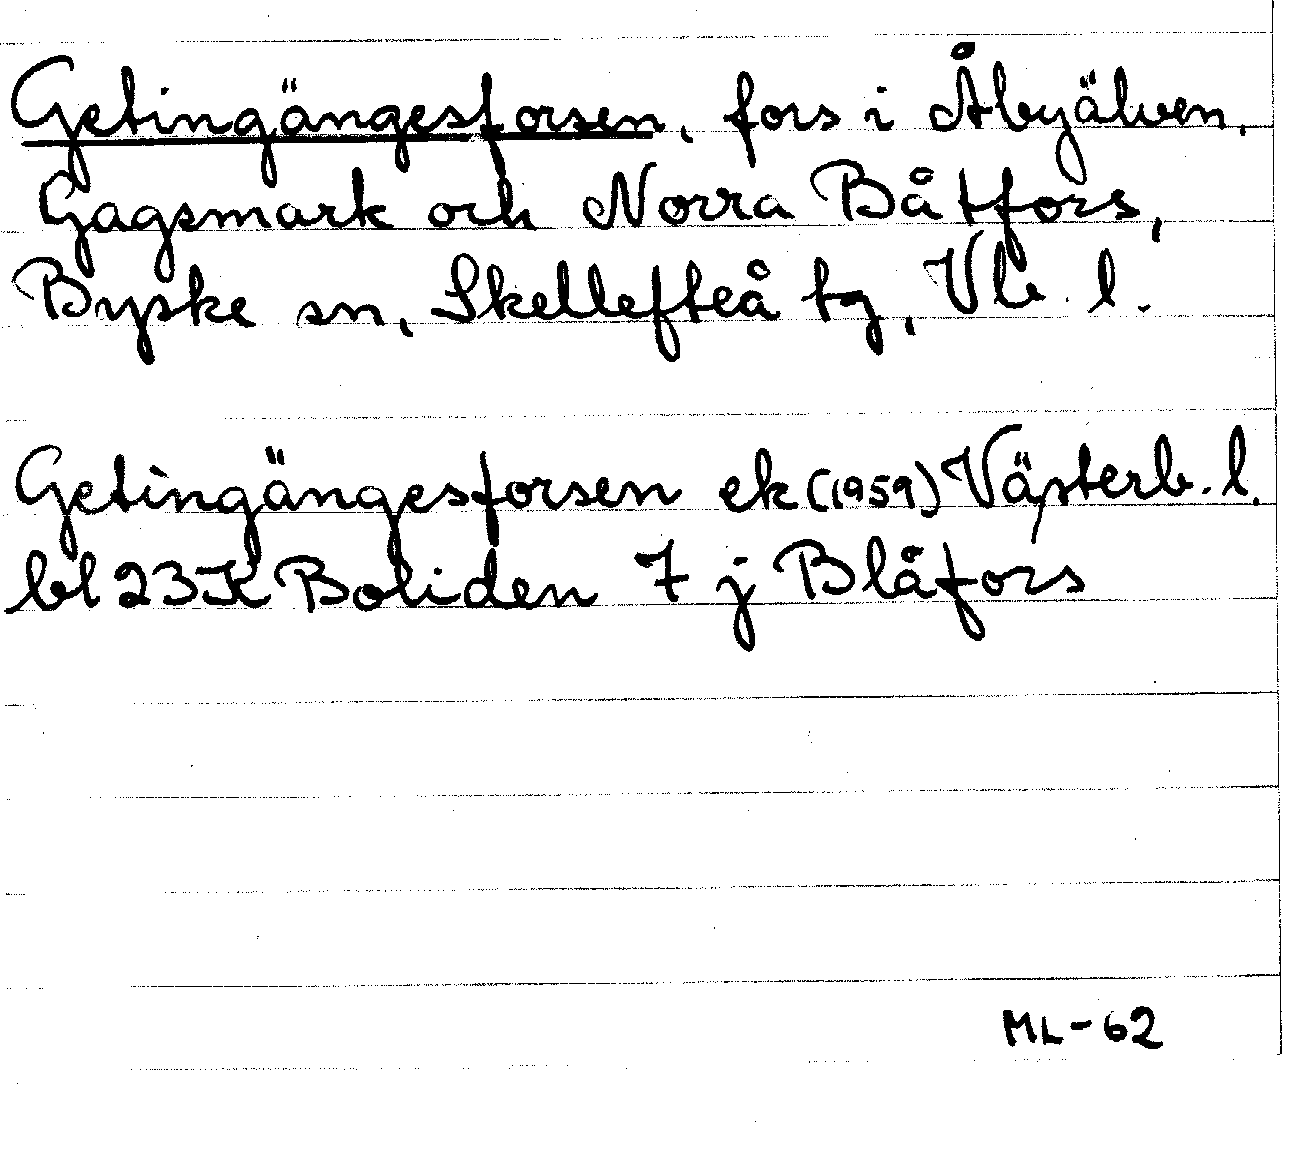 Getingängesforsen, fors i Åbyälven,
Gagsmark och Norra Båtfors,
Byske sn, Skellefteå tg, Vb. l.
Getingängesforsen ek (1959) Västerb. l.
bl 23K Boliden 7 j Blåfors
ML-62